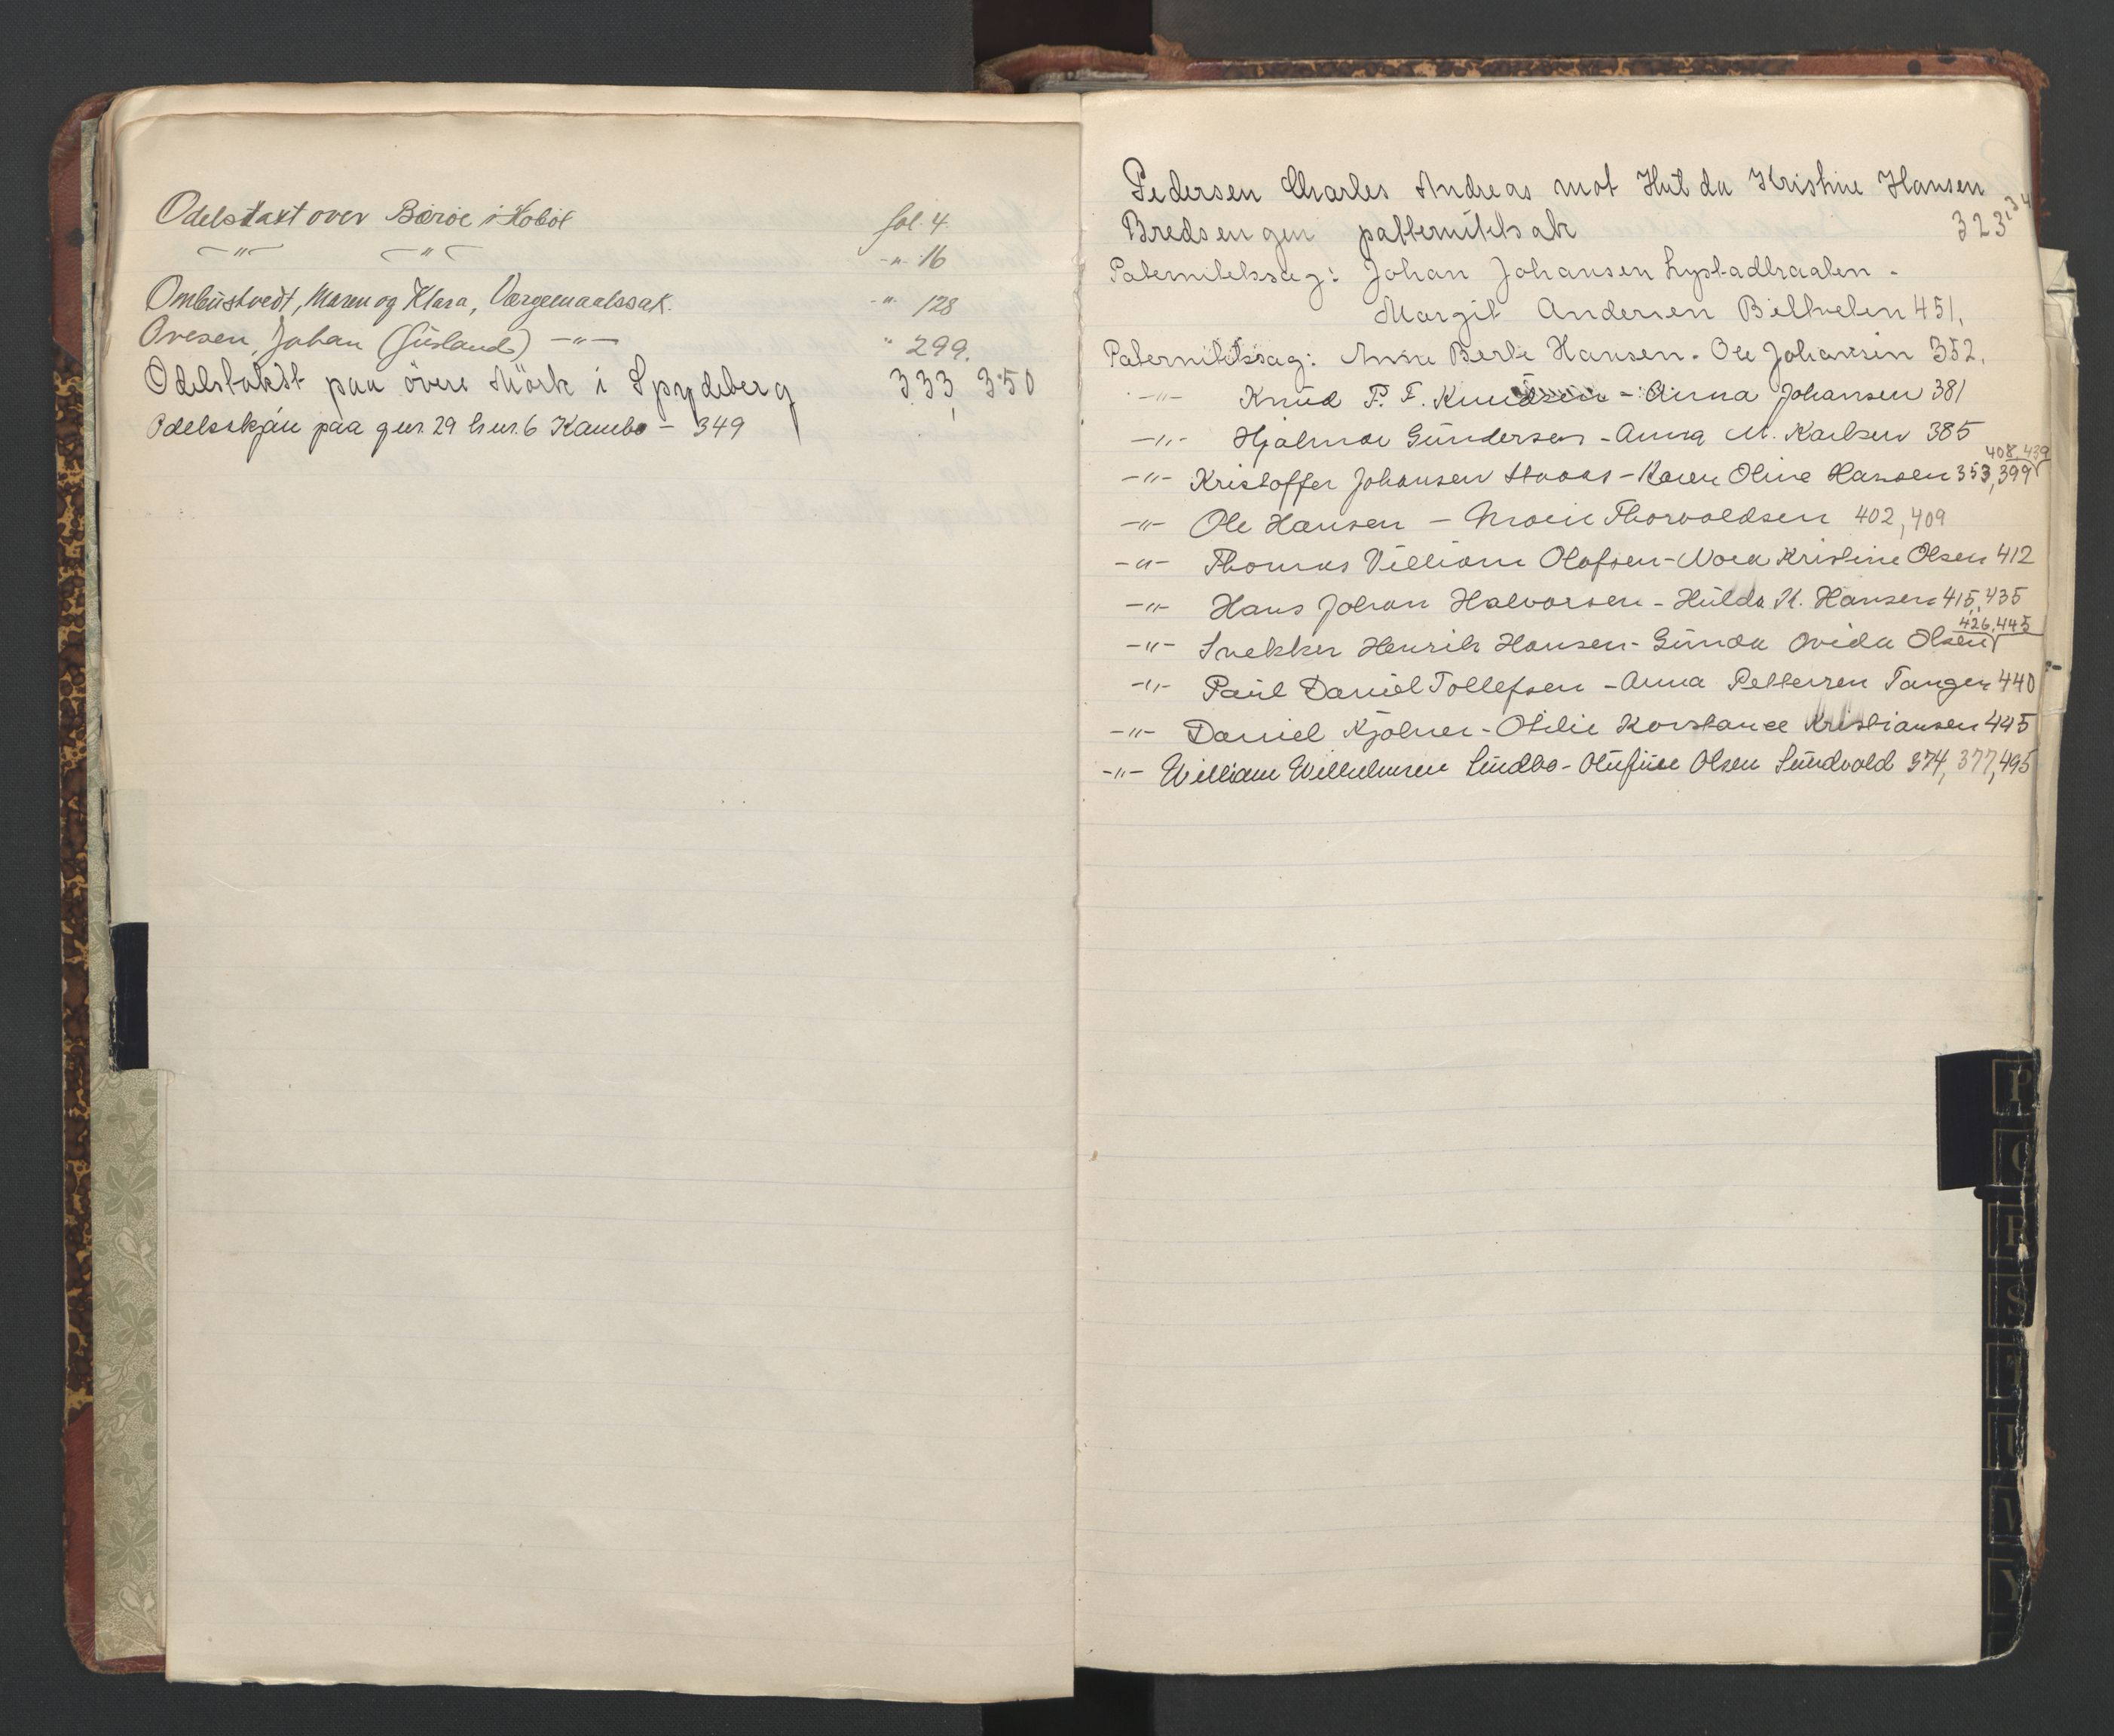 Odelstaxt over Børoe i Hobøl fol. 4.
-"- -"- -"- 16
Ombustvedt, Maren og Klara, Værgemaalssak. -"- 128
Ovesen, Johan -"- " 299.
Odelstakst paa övre Mörk i Spydeberg 333, 350
Odelsskjøn paa gnr. 29 bnr. 6 Kambo - 349
Pedersen Charles Andreas mot Hulda Kristine Hansen
Bredsengen patternitetsak 323,
Paternitetssag: Johan Johansen -
Margit Andersen 451.
Paternitetssag: Anne Berte Hansen - Ole Johansen 352.
-"- Knud P. F. Knudsen - Anna Johansen 381
-"- Hjalmar Gundersen - Anna M. Karlsen 385
408, 439
-"- Kristoffer Johansen - Karen Oline Hansen 353, 399
-"- Ole Hansen - Marie Thorvaldsen 402, 409
-"- Thomas Villiam Olafsen - Nora Kristine Olsen 412
-"- Hans Johan Halvorsen - Hulda K. Hansen 415, 435
426, 445
-"- Henrik Hansen - Gunda Ovida Olsen
-"- Paul Daniel Tollefsen - Anna Pettersen Tangen 440
-"- Daniel Kjølner - Otilie Konstance Kristiansen 445
-"- William Willelmsen Lundbo - Olufine Olsen Sundvold 374, 377, 495
P
R
S
T
U
V
Y